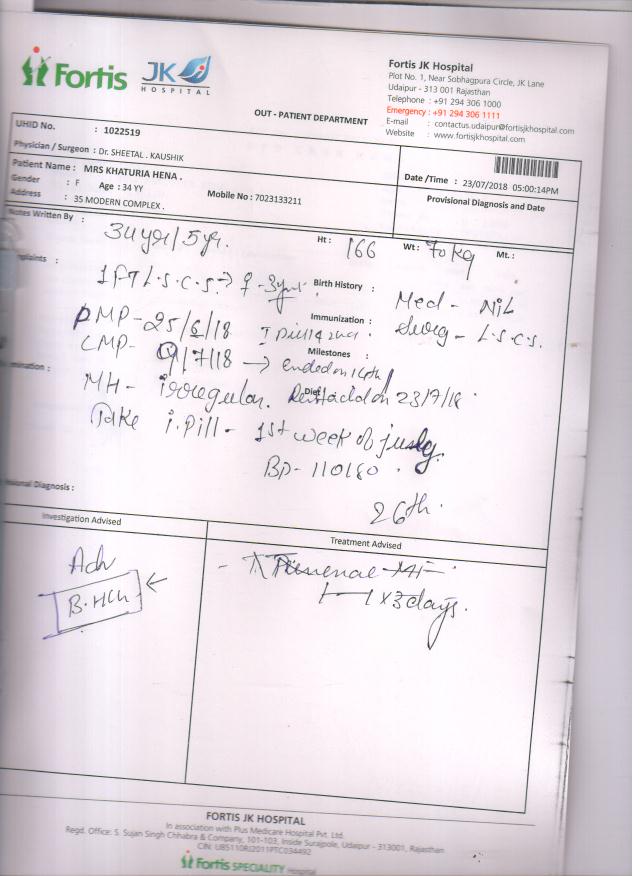 Fortis JK HOSPITAL
Fortis JK Hospital
Plot No. 1, Near Sobhagpura Circle, JK Lane
Udaipur - 313 001 Rajasthan
Telephone : +91 294 306 1000
Emergency : +91 294 306 1111
E-mail : contactus.udaipur@fortisjkhospital.com
Website : www.fortisjkhospital.com
OUT - PATIENT DEPARTMENT
UHID No. : 1022519
Physician / Surgeon : Dr. SHEETAL . KAUSHIK
Patient Name : MRS KHATURIA HENA .
Gender : F Age : 34 YY Mobile No : 7023133211
Address : 35 MODERN COMPLEX .
Date /Time : 23/07/2018 05:00:14PM
Provisional Diagnosis and Date
Notes Written By :
34yr/5yr. Ht : 166 Wt : 70 kg Mt. :
plaints :
1 FT L.S.C.S → Birth History : Med - NiL
PMP - 25/6/18 Immunization : Surg - L.S.C.S.
LMP- /7/18 → Ended on Milestones :
mination :
MH - irregular. Diet on 23/7/18
Take i.pill - 1st week of july.
BP - 110/80 .
26th.
ional Diagnosis :
Investigation Advised
Treatment Advised
Adv
B.HCG ←
x 3 days.
FORTIS JK HOSPITAL
In association with Plus Medicare Hospital Pvt. Ltd.
Regd. Office: S. Sujan Singh Chhabra & Company, 101-103, Inside Surajpole, Udaipur - 313001, Rajasthan
CIN: U85110RJ2011PTC034492
Fortis SPECIALITY Hospital